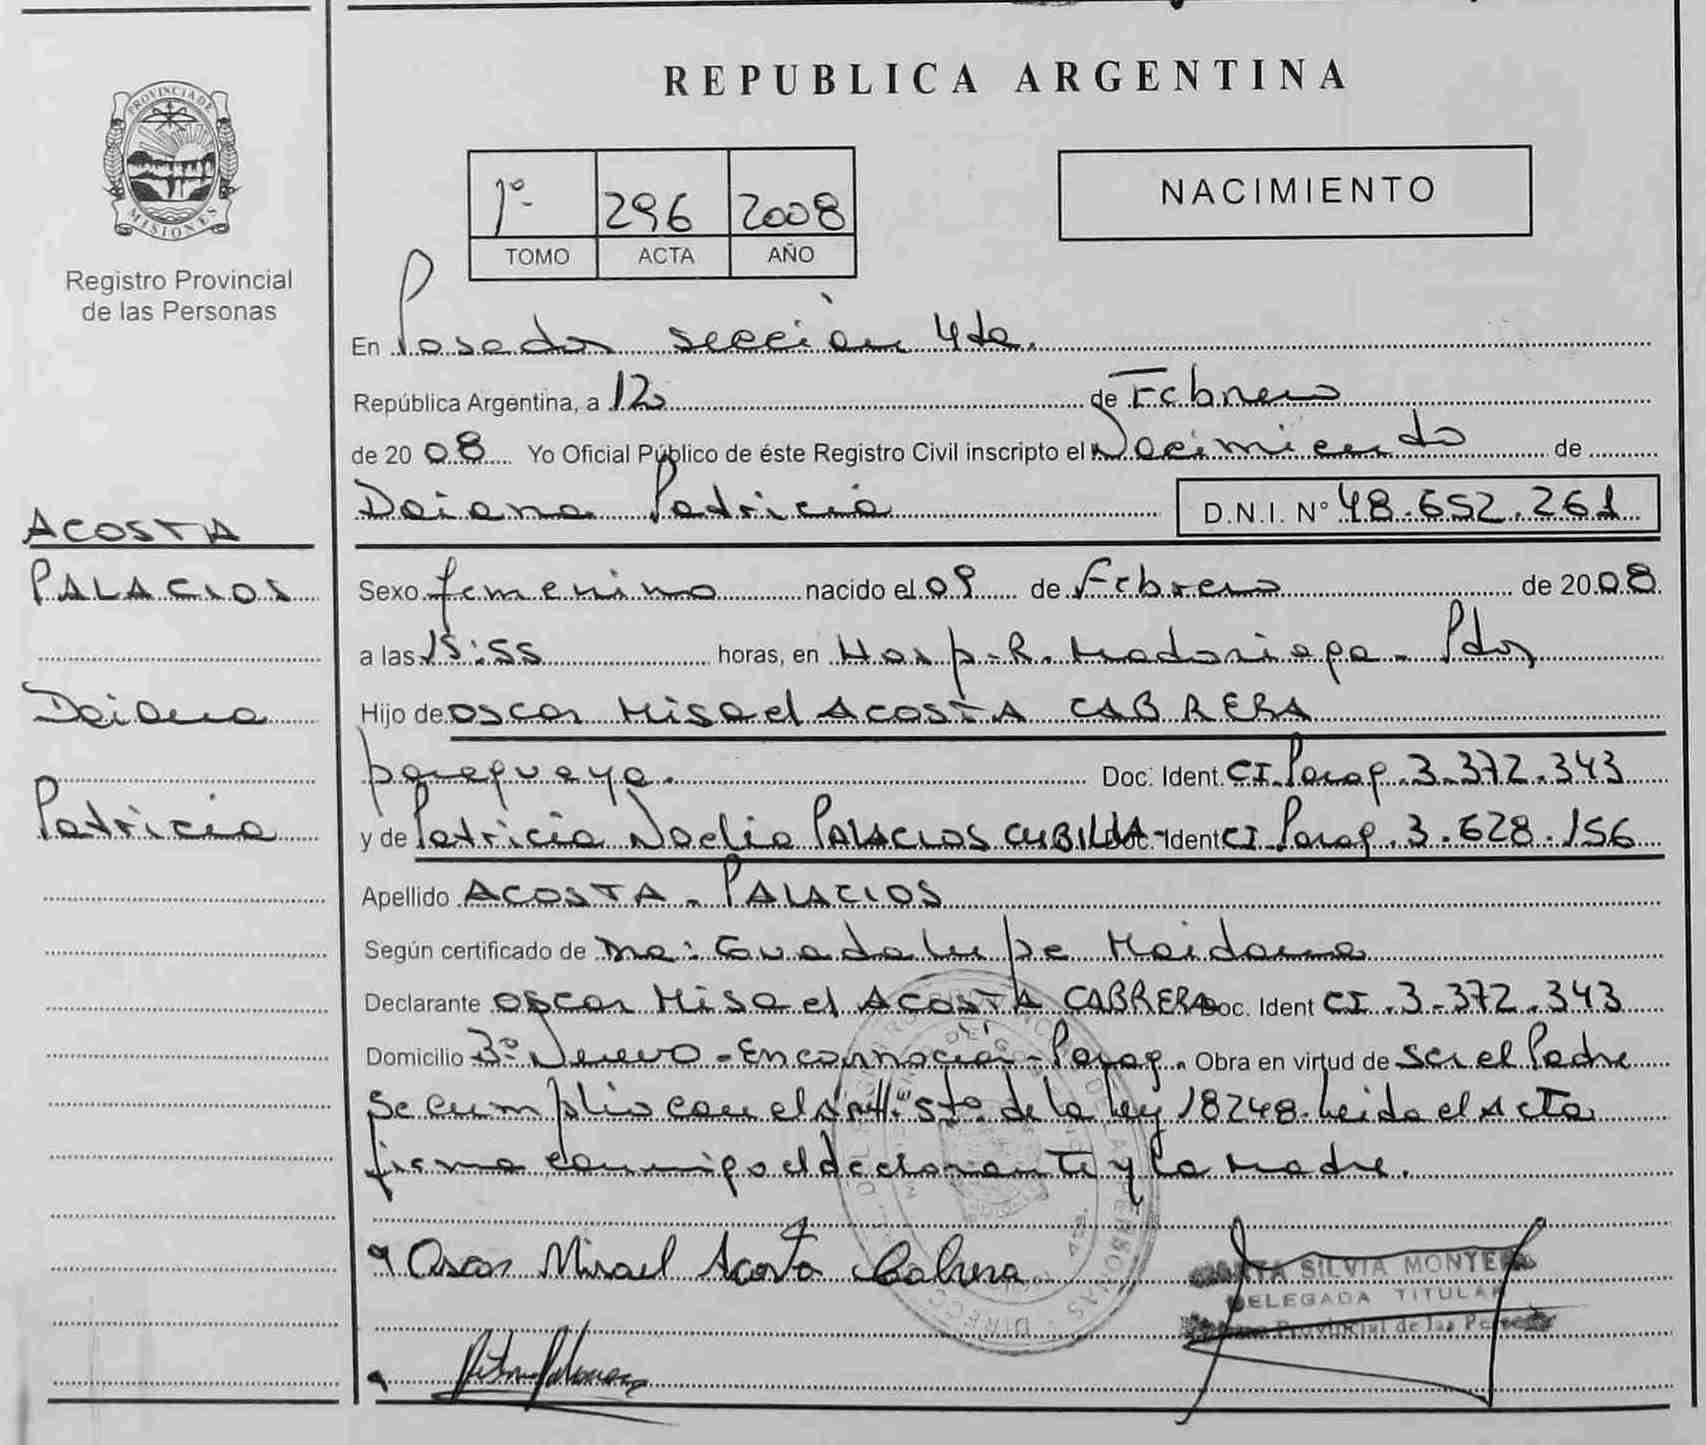 REPUBLICA ARGENTINA
PROVINCIA DE
MISIONES
Registro Provincial
de las Personas
1º 296 2008
TOMO ACTA AÑO
NACIMIENTO
En Posadas sección 4ta.
República Argentina, a 12 de Febrero
de 2008 Yo Oficial Público de éste Registro Civil inscripto el Nacimiento de
Daiana Patricia D.N.I. Nº 48.652.261
ACOSTA
PALACIOS
Daiana
Patricia
Sexo femenino nacido el 09 de Febrero de 2008
a las 15:55 horas, en Hosp. R. Madariaga - Pdas
Hijo de Oscar Misael ACOSTA CABRERA
paraguaya. Doc. Ident. CI. Parag. 3.372.343
y de Patricia Noelia PALACIOS CUBILLA Doc. Ident CI. Parag. 3.628.156
Apellido ACOSTA - PALACIOS
Según certificado de Ma: Guadalupe Maidana
Declarante Oscar Misael ACOSTA CABRERA Doc. Ident CI. 3.372.343
Domicilio Bº Nuevo - Encarnación - Parag. Obra en virtud de ser el Padre
Se cumplio con el Art. 5to. de la ley 18248. Leida el Acta
firma conmigo el declarante y la Madre.
Oscar Misael Acosta Cabrera
SILVIA MONTE
DELEGADA TITULAR
Provincial de las